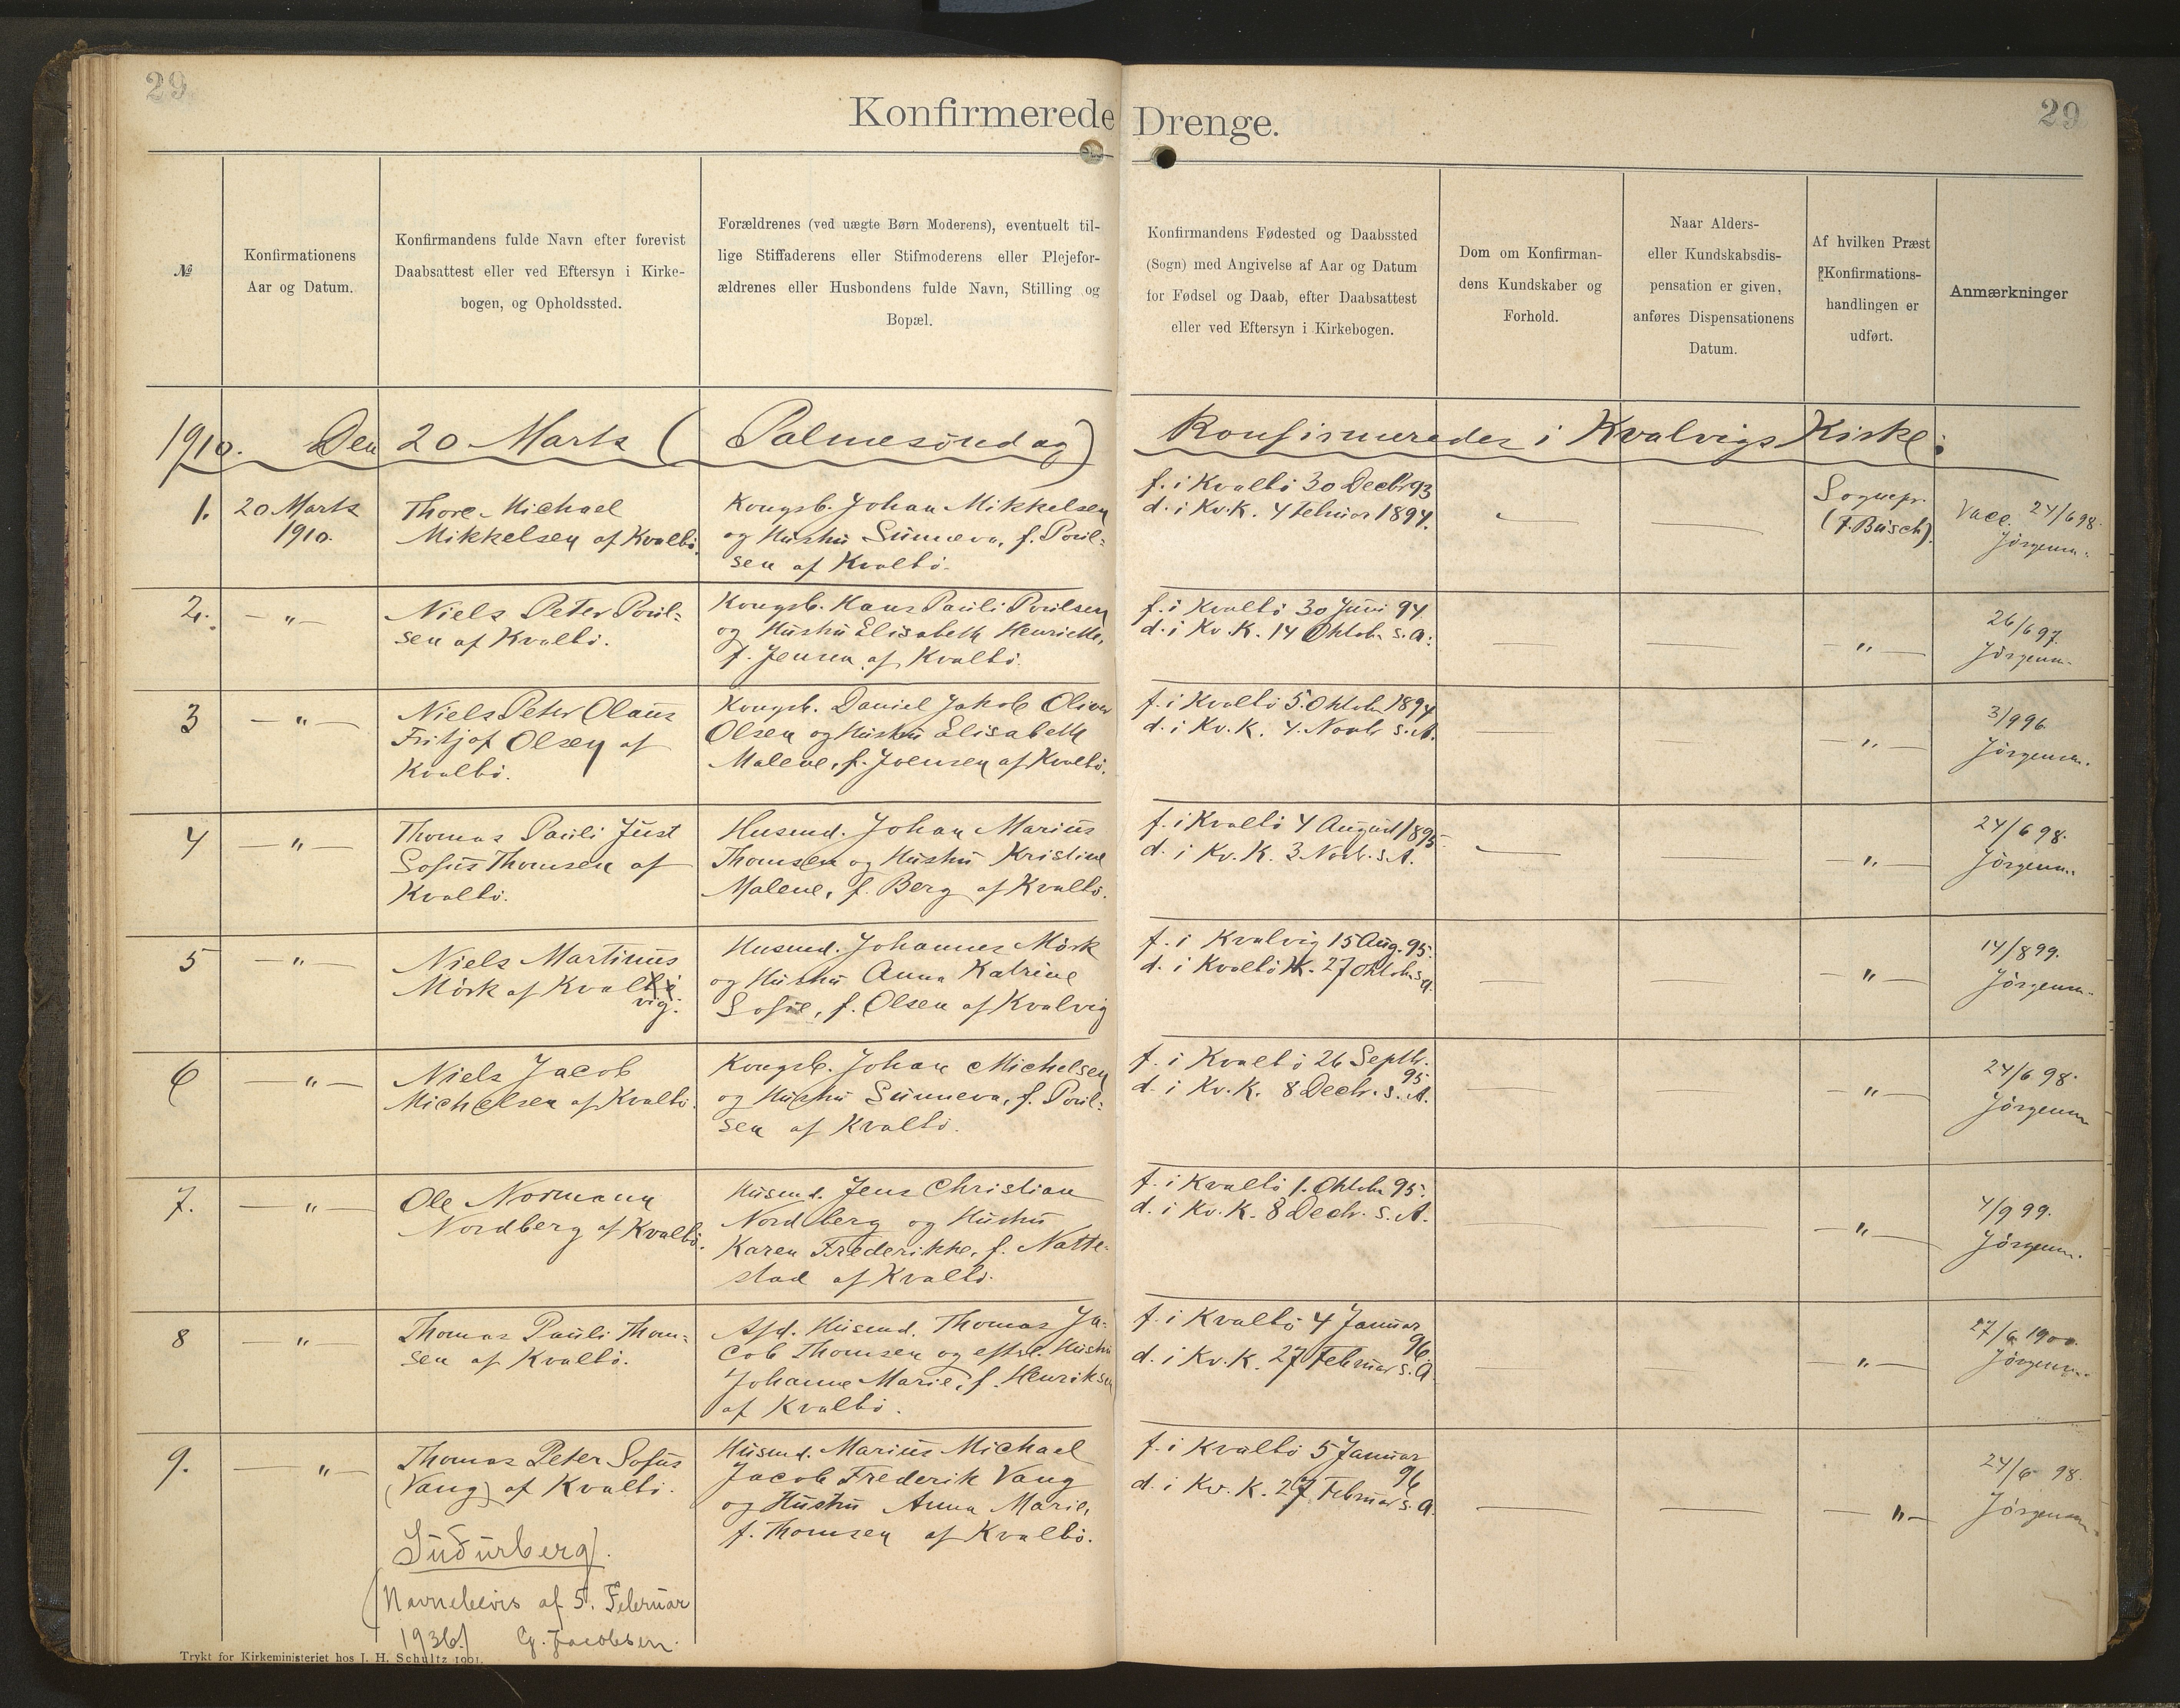 29
29
Konfirmerede Drenge.
№
Konfirmationens
Aar og Datum.
Konfirmandens fulde Navn efter forevist
Daabsattest eller ved Eftersyn i Kirke-
bogen, og Opholdssted.
Forældrenes (ved uægte Børn Moderens), eventuelt til-
lige Stiffaderens eller Stifmoderens eller Plejefor-
ældrenes eller Husbondens fulde Navn, Stilling og
Bopæl.
Konfirmandens Fødested og Daabssted
(Sogn) med Angivelse af Aar og Datum
for Fødsel og Daab, efter Daabsattest
eller ved Eftersyn i Kirkebogen.
Dom om Konfirman-
dens Kundskaber og
Forhold.
Naar Alders-
eller Kundskabsdis-
pensation er given,
anføres Dispensationens
Datum.
Af hvilken Præst
Konfirmations-
handlingen er
udført.
Anmærkninger
1910. Den 20 Marts (Palmesøndag) Konfirmeredes i Kvalvigs Kirke:
1.
20 Marts
1910.
Thore Michael
Mikkelsen af Kvalbö.
Kongsb. Johan Mikkelsen
og Hustru Sunneva, f. Poul-
sen af Kvalbö.
f. i Kvalbö 30 Decbr 93
d. i Kv. K. 4 Februar 1894.
—
—
Sognepr.
(F. Busch).
Vacc. 24/6 98.
Jörgensen.
2.
— " —
Niels Peter Poul-
sen af Kvalbö.
Kongsb. Hans Pauli Poulsen
og Hustru Elisabeth Henriette,
f. Jensen af Kvalbö.
f. i Kvalbö 30 Juni 94
d. i Kv. K. 14 Oktob. s. A.
—
—
— " —
26/6 97.
Jörgensen.
3
— " —
Niels Peter Olaus
Fritjof Olsen af
Kvalbö.
Kongsb. Daniel Jakob Oliver
Olsen og Hustru Elisabeth
Malene, f. Joensen af Kvalbö.
f. i Kvalbö 5. Oktobr 1894
d. i Kv. K. 4. Novbr s. A.
—
—
— " —
3/9 96
Jörgensen.
4
— " —
Thomas Pauli Just
Sofus Thomsen af
Kvalbö.
Husmd. Johan Marius
Thomsen og Hustru Kristine
Malene, f. Berg af Kvalbö.
f. i Kvalbö 4 August 1895
d. i Kv. K. 3 Novb. s. A.
—
— " —
24/6 98.
Jörgensen.
5
— " —
Niels Martinus
Mörk af Kvalbö
vig.
Husmd. Johannes Mörk
og Hustru Anna Katrine
Sofie, f. Olsen af Kvalvig
f. i Kvalvig 15 Aug. 95.
d. i Kvalbö K. 27 Oktob. s. A.
—
—
— " —
14/8 99.
Jörgensen.
6
— " —
Niels Jacob
Michelsen af Kvalbö.
Kongsb. Johan Michelsen
og Hustru Sunneva, f. Poul-
sen af Kvalbö.
f. i Kvalbö 26 Septbr.
95
d. i Kv. K. 8 Decbr. s. A.
—
—
— " —
24/6 98.
Jörgensen
7.
— " —
Ole Normann
Nordberg af Kvalbö.
Husmd. Jens Christian
Nordberg og Hustru
Karen Frederikke, f. Natte-
stad af Kvalbö.
f. i Kvalbö 1. Oktobr 95.
d. i Kv. K. 8 Decbr. s. A.
—
—
— " —
4/9 99.
Jörgensen.
8
— " —
Thomas Pauli Thom-
sen af Kvalbö.
Afd. Husmd. Thomas Ja-
cob Thomsen og efterl. Hustru
Johanne Marie, f. Henriksen
af Kvalbö.
f. i Kvalbö 4 Januar
96
d. i Kv. K. 27 Februar s. A
—
—
— " —
27/6 1900.
Jörgensen.
9.
— " —
Thomas Peter Sofus
(Vang) af Kvalbö.
Suðurberg.
(Navnebevis af 5. Februar
1936.) G. Jacobsen.
Husmd. Marius Michael
Jacob Frederik Vang
og Hustru Anna Marie,
f. Thomsen af Kvalbö.
f. i Kvalbö 5 Januar
96
d. i Kv. K. 27 Februar s. A.
—
—
— " —
24/6 98.
Jörgensen
Trykt for Kirkeministeriet hos J. H. Schultz 1901.